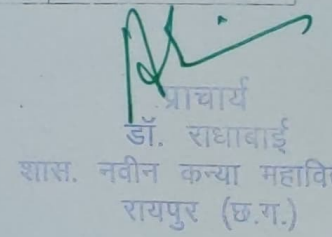 प्राचार्य
डॉ. राधाबाई
शास. नवीन कन्या महावि
रायपुर (छ.ग.)